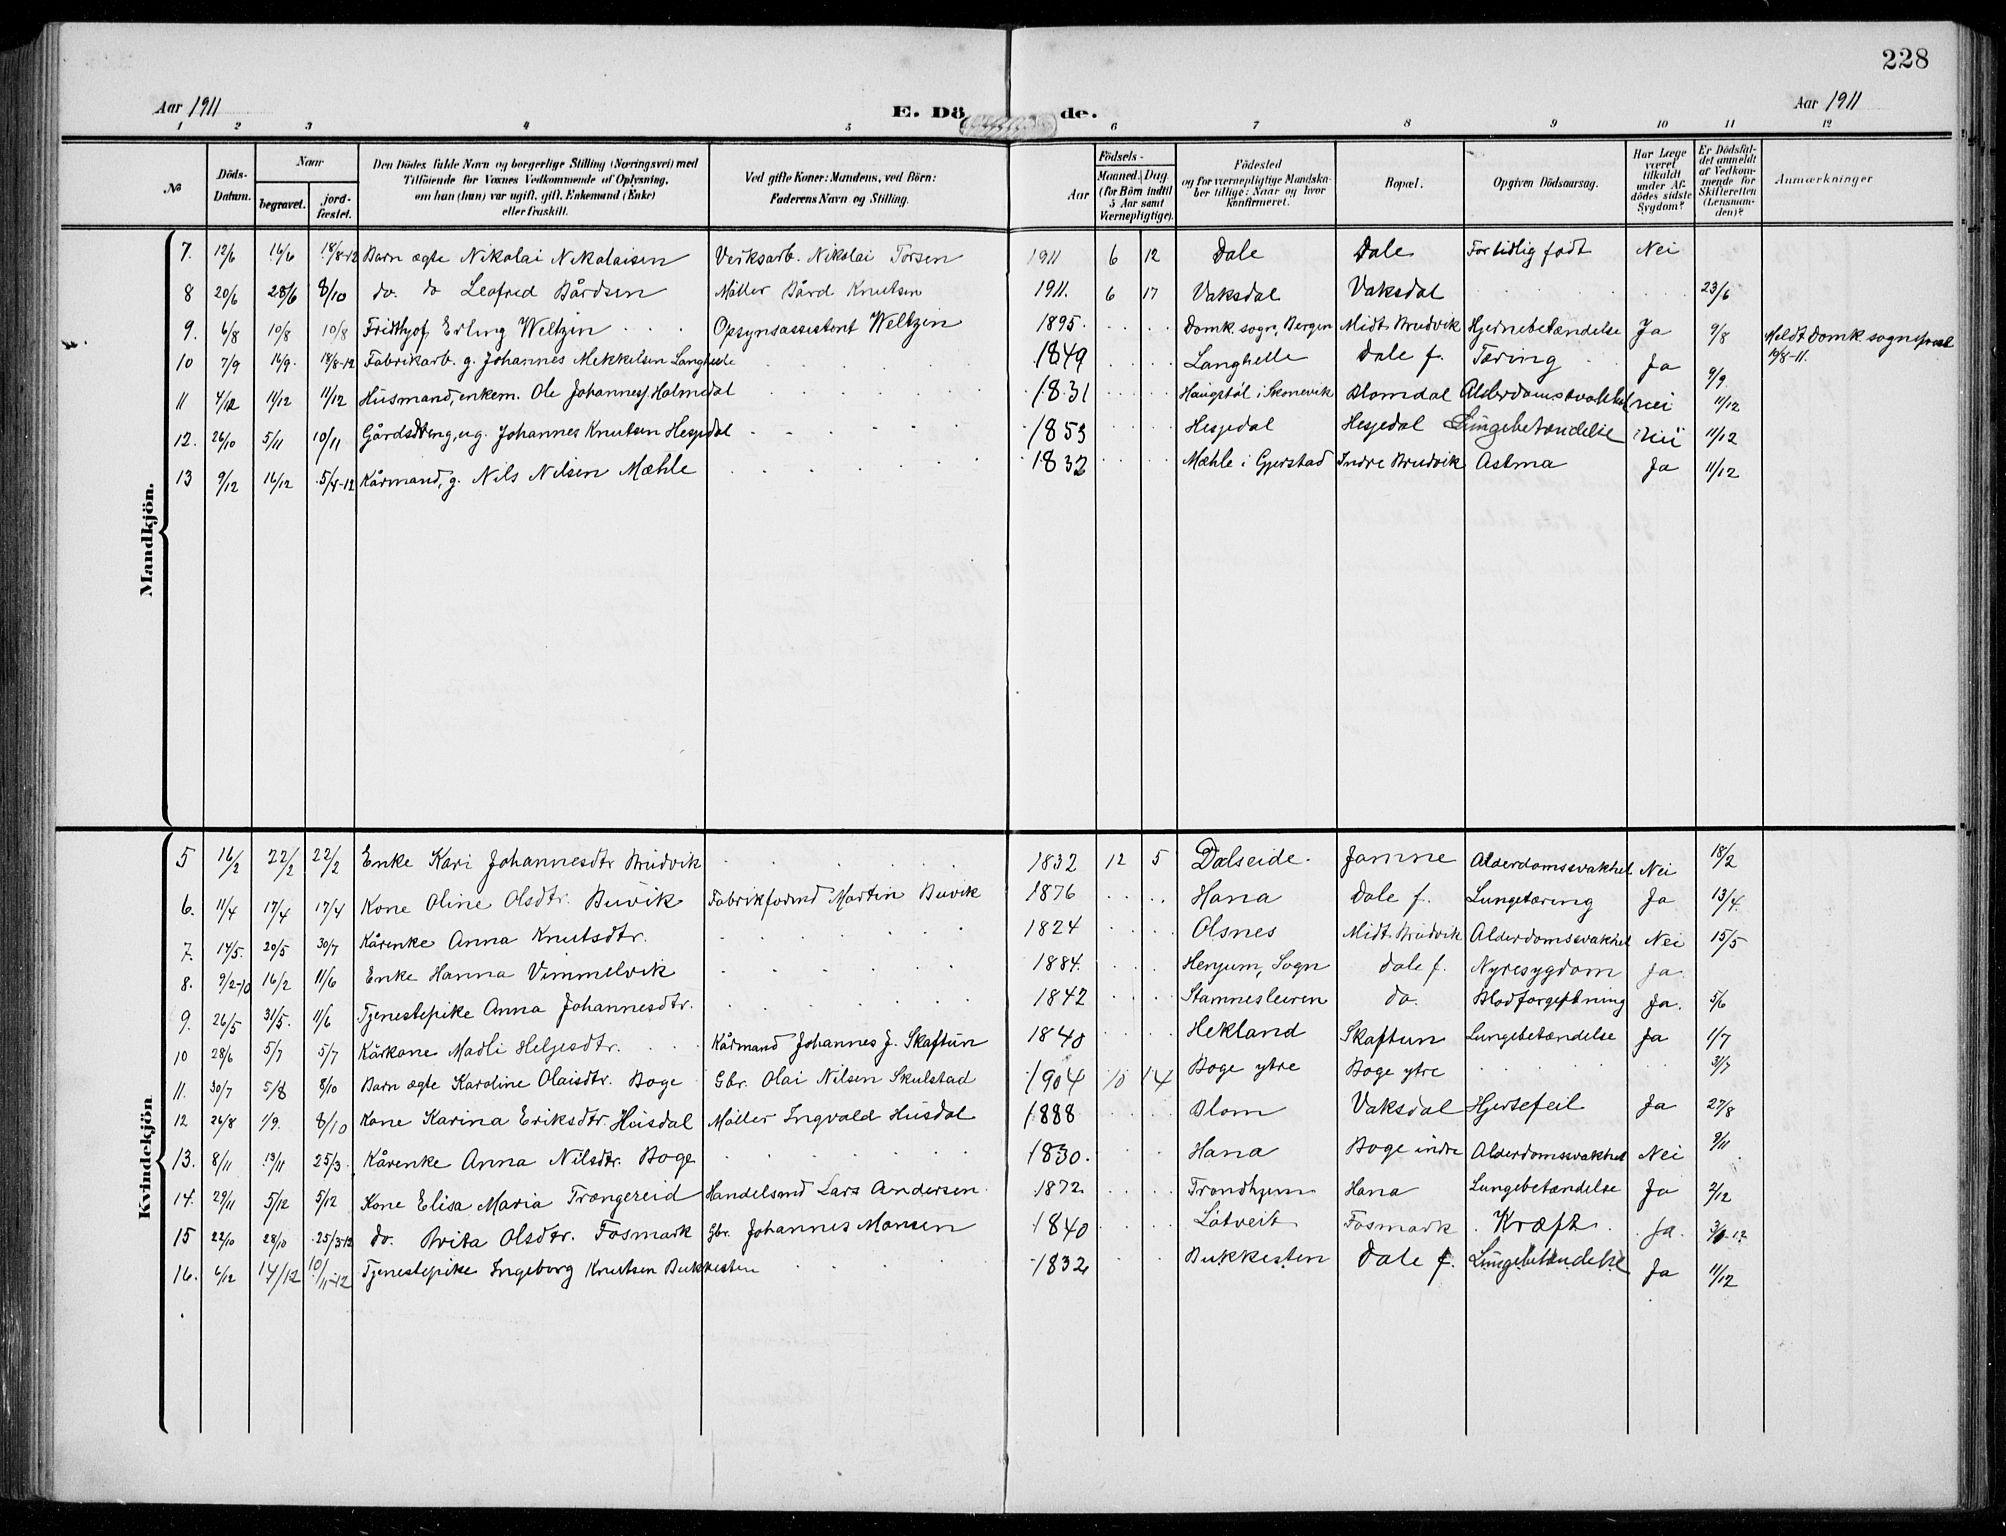 228
Aar 1911
E. Dö de.
Aar 1911
1 2 3 4 5 6 7 8 9 10 11 12
No
Döds-Datum.
Naar
begravet.
jord-fæstet.
Den Dödes fulde Navn og borgerlige Stilling (Næringsvei) med
Tilföiende for Voxnes Vedkommende af Oplysning,
om han (hun) var ugift, gift, Enkemand (Enke)
eller fraskilt.
Ved gifte Koner: Mandens, ved Börn:
Faderens Navn og Stilling.
Aar
Födsels-
Maaned. Dag
(for Börn indtil
5 Aar samt
Værnepligtige).
Födested
og for værnepligtige Mandska-
ber tillige: Naar og hvor
konfirmeret.
Bopæl.
Opgiven Dödsaarsag.
Har Læge
været
tilkaldt
under Af-
dödes sidste
Sygdom?
Er Dödsfal-
det anmeldt
af Vedkom-
mende for
Skifteretten
(Lensman-
den)?
Anmærkninger
Mandkjön.
7. 12/6 16/6 18/8-12 Barn ægte Nikolai Nikolaisen Verksarb. Nikolai Torsen 1911 6 12 Dale Dale For tidlig født Nei
8 20/6 28/6 8/10 do. do Leofred Bårdsen Møller Bård Knutsen 1911. 6 17 Vaksdal Vaksdal 23/6
9. 6/8 10/8 10/8 Fridthjof Erling Weltzin Opsynsassistent Weltzin 1895. Domk. sogn, Bergen Midt. Brudvik Hjernebetændelse Ja 9/8 Meldt Domk. sogneprest
10 7/9 16/9. 18/8-12 Fabrikarb. g. Johannes Mekkelsen Langhede 1849 Langhelle Dale f. Tæring Ja 9/9. 14/8-11.
11 4/12 11/12 11/12 Husmand, enkem. Ole Johannesj. Holmedal 1831 Haugstøl i Skonevik Blomdal Alderdomssvakhet nei 11/12
12. 26/10 5/11 10/11 Gårdsdreng, ug. Johannes Knutsen Hesjedal 1853 Hesjedal Hesjedal Lungebetændelse nei 11/12
13 9/12 16/12 5/4-12 Kårmand, g. Nils Nilsen Mæhle 1832 Mæhle i Gjerstad Indre Brudvik Astma Ja 11/12
Kvindekjön
5 16/2 22/2 22/2 Enke Kari Johannesdtr Brudvik 1832 12 5 Dalseide. Jamne Alderdomssvakhet Nei 18/2
6. 11/4 17/4 17/4 Kone Oline Olsdtr. Buvik Fabrikformd Martin Buvik 1876 Hana Dale f. Lungetæring Ja 13/4
7. 14/5. 20/5 30/7 Kårenke Anna Knutsdtr. 1824 Olsnes Midt. Brudvik Alderdomssvakhet Nei 15/5
8. 9/2-10 16/2 11/6 Enke Hanna Vimmelvik 1884. Henjum, Sogn Dale f. Nyresygdom Ja
9. 26/5 31/5. 11/6 Tjenestepike Anna Johannesdtr. 1842 Stamnesleiren do. Blodforgiftning Ja. 5/6
10 28/6 5/7 5/7 Kårkone Madli Helgesdtr. Kårmand Johannes J. Skaftun 1840 Hekland Skaftun Lungebetændelse Ja 1/7
11. 30/7 5/8 8/10 Barn ægte Karoline Olaisdtr. Boge Gbr. Olai Nilsen Skulstad 1904 10 14 Boge ytre Boge ytre 31/7
12 26/8 1/9. 8/10 Kone Karina Eriksdtr. Husdal Møller Ingvald Husdal 1888 Blom Vaksdal Hjertefeil Ja 27/8
13. 8/11 13/11 25/3. Kårenke Anna Nilsdtr. Boge 1830. Hana Boge indre Alderdomssvakhet Nei 9/11
14. 29/11 5/12 5/12 Kone Elisa Maria Trængereid Handelsmd Lars Andersen 1872 Trondhjem Hana Lungebetændelse Ja 2/12
15 22/10 28/10 25/3-12 do. Brita Olsdtr. Fosmark Gbr. Johannes Monsen 1840 Låtveit Fosmark Kræft. Ja.
16. 6/12 14/12 10/11-12 Tjenestepike Ingeborg Knutsen Bukkesten 1832 Bukkesten Dale f. Lungebetændelse Ja 11/12